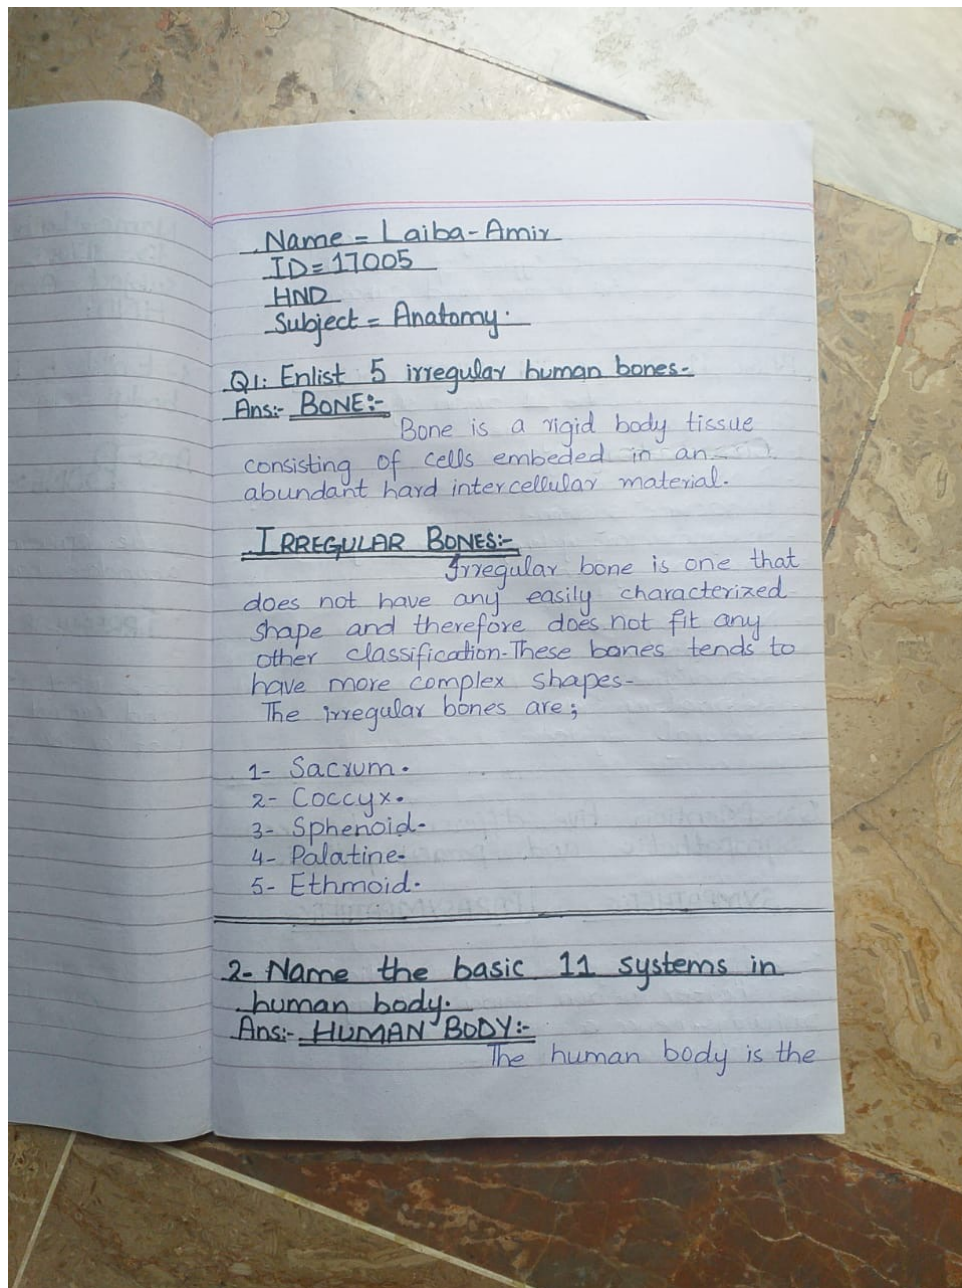 Name = Laiba-Amir
ID=17005
HND
Subject = Anatomy.
Q1: Enlist 5 irregular human bones-
Ans:- BONE:-
Bone is a rigid body tissue
consisting of cells embeded in an
abundant hard intercellular material.
IRREGULAR BONES:-
Irregular bone is one that
does not have any easily characterized
shape and therefore does not fit any
other classification-These bones tends to
have more complex shapes-
The irregular bones are;
1- Sacrum.
2- Coccyx.
3- Sphenoid-
4- Palatine-
5- Ethmoid.
2- Name the basic 11 systems in
human body.
Ans:- HUMAN BODY:-
The human body is the